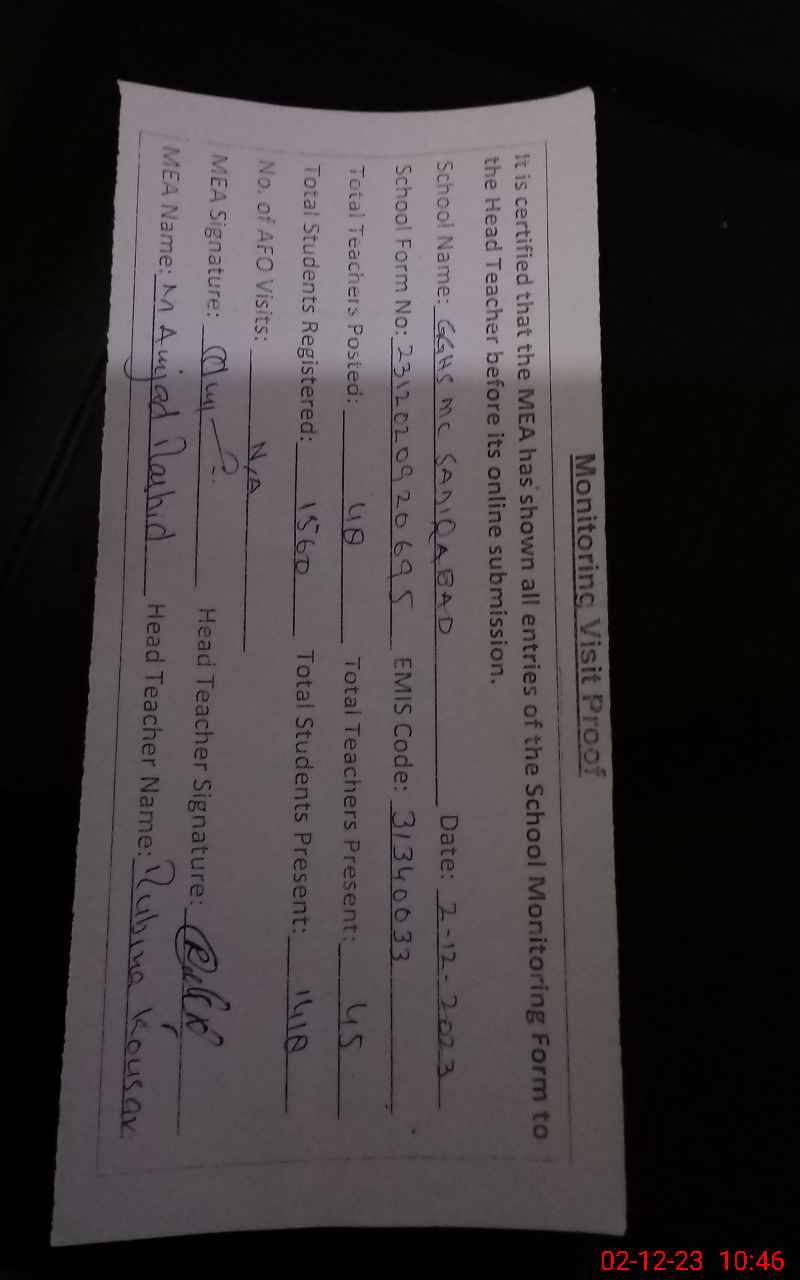 Monitoring Visit Proof
It is certified that the MEA has shown all entries of the School Monitoring Form to
the Head Teacher before its online submission.
School Name: GGHS MC SADIQABAD Date: 2-12-2023
School Form No: 2312020920695 EMIS Code: 31340033
Total Teachers Posted: 48 Total Teachers Present: 45
Total Students Registered: 1560 Total Students Present: 1418
No. of AFO Visits: N/A
MEA Signature: Head Teacher Signature:
MEA Name: M Amjad Rashid Head Teacher Name: Rubina Kousar
02-12-23 10:46